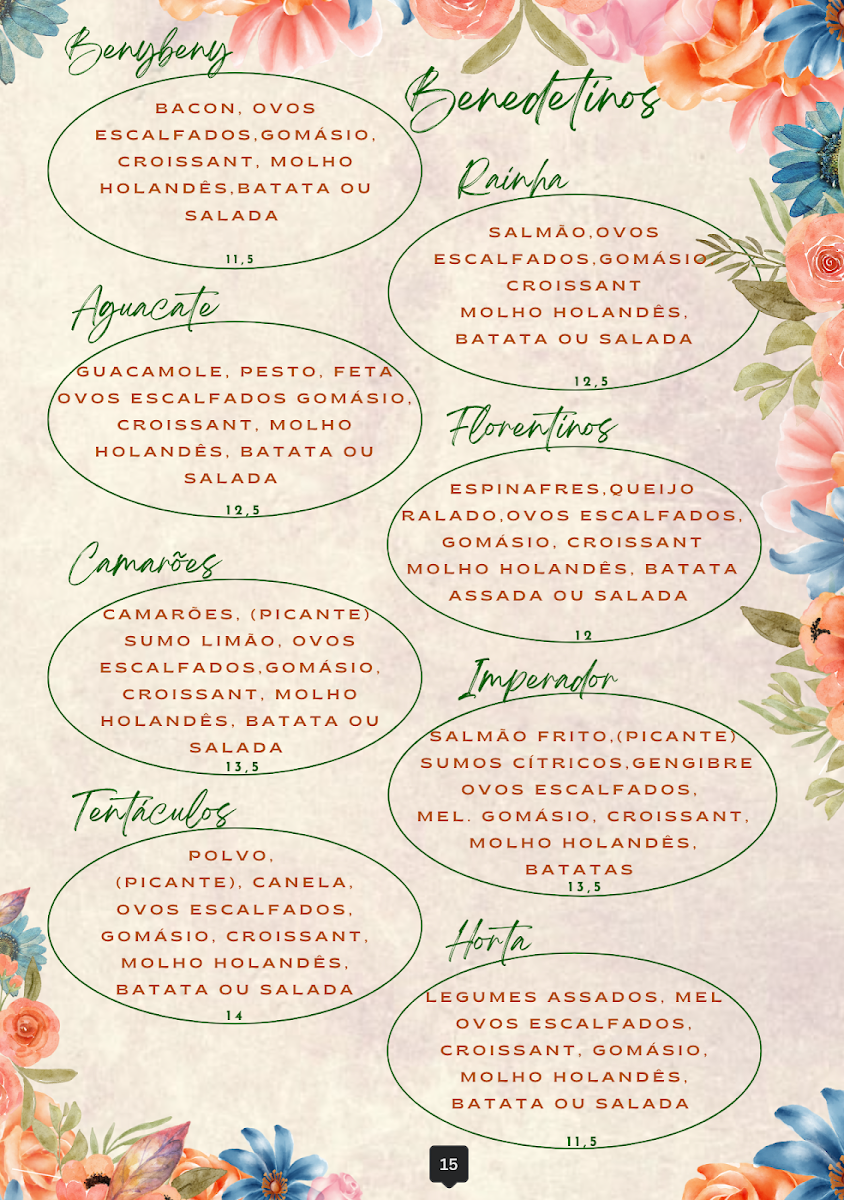 Benybeny
BACON, OVOS
ESCALFADOS,GOMÁSIO,
CROISSANT, MOLHO
HOLANDÊS,BATATA OU
SALADA
11,5
Aguacate
GUACAMOLE, PESTO, FETA
OVOS ESCALFADOS GOMÁSIO,
CROISSANT, MOLHO
HOLANDÊS, BATATA OU
SALADA
12,5
Camarões
CAMARÕES, (PICANTE)
SUMO LIMÃO, OVOS
ESCALFADOS,GOMÁSIO,
CROISSANT, MOLHO
HOLANDÊS, BATATA OU
SALADA
13,5
Tentáculos
POLVO,
(PICANTE), CANELA,
OVOS ESCALFADOS,
GOMÁSIO, CROISSANT,
MOLHO HOLANDÊS,
BATATA OU SALADA
14
Benedetinos
Rainha
SALMÃO,OVOS
ESCALFADOS,GOMÁSIO
CROISSANT
MOLHO HOLANDÊS,
BATATA OU SALADA
12,5
Florentinos
ESPINAFRES,QUEIJO
RALADO,OVOS ESCALFADOS,
GOMÁSIO, CROISSANT
MOLHO HOLANDÊS, BATATA
ASSADA OU SALADA
12
Imperador
SALMÃO FRITO,(PICANTE)
SUMOS CÍTRICOS,GENGIBRE
OVOS ESCALFADOS,
MEL. GOMÁSIO, CROISSANT,
MOLHO HOLANDÊS,
BATATAS
13,5
Horta
LEGUMES ASSADOS, MEL
OVOS ESCALFADOS,
CROISSANT, GOMÁSIO,
MOLHO HOLANDÊS,
BATATA OU SALADA
11,5
15